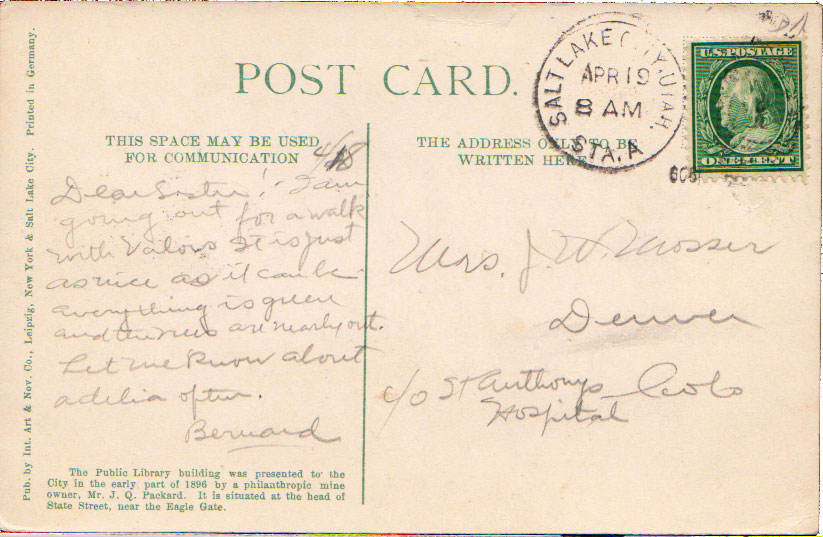 POST CARD.
SALT LAKE CITY, UTAH.
APR 19
8 AM
STA. A
U.S. POSTAGE
ONE CENT
THIS SPACE MAY BE USED
FOR COMMUNICATION
4/18
THE ADDRESS ONLY TO BE
WRITTEN HERE
Dear Sister! I am
going out for a walk
with Valois It is just
as nice as it can be
everything is green
and the trees are nearly out.
Let me know about
adelia often.
Bernard
Mrs. J. W. Mosser
Denver
c/o St Anthonys Colo
Hospital
The Public Library building was presented to the
City in the early part of 1896 by a philanthropic mine
owner, Mr. J. Q. Packard. It is situated at the head of
State Street, near the Eagle Gate.
Pub. by Int. Art & Nov. Co., Leipzig, New York & Salt Lake City. Printed in Germany.